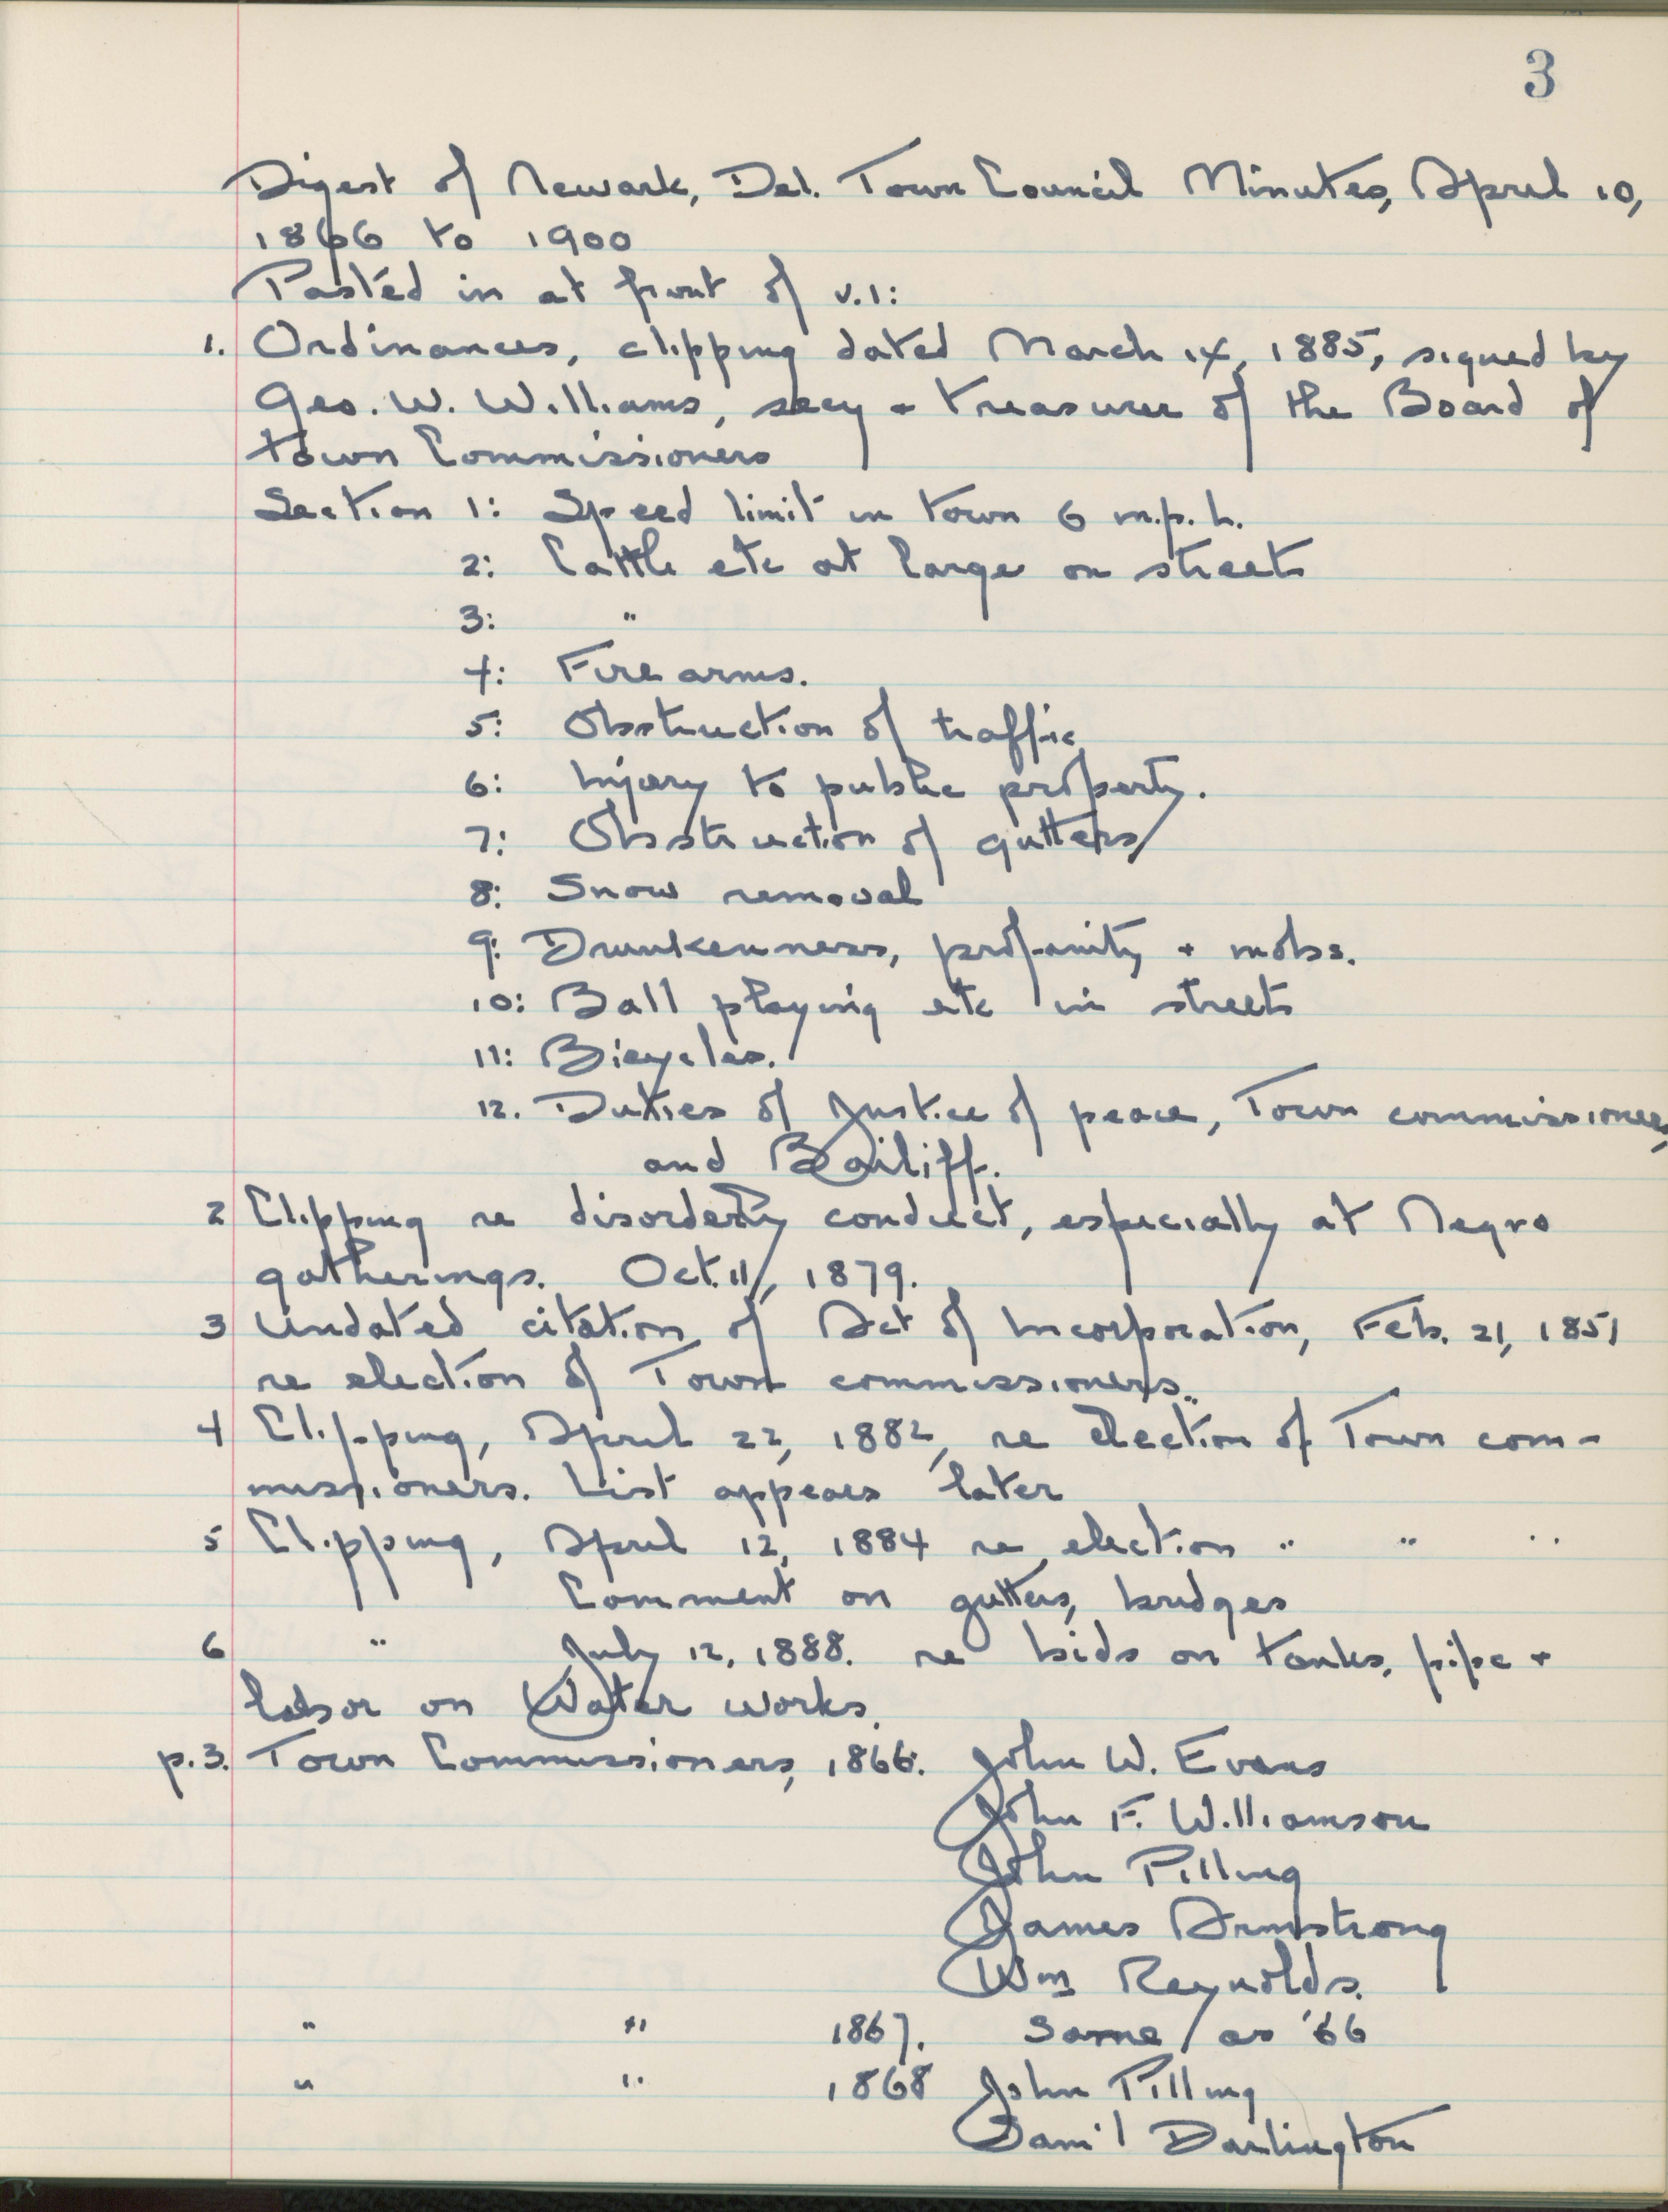 3
Digest of Newark, Del. Town Council Minutes, April 10,
1866 to 1900
Pasted in at front of v.1:
1. Ordinances, clipping dated March 14, 1885, signed by
Geo. W. Williams, secy + treasurer of the Board of
town Commissioners
Section 1: Speed limit in town 6 m.p.h.
2: Cattle etc at large on streets
3: "
4: Fire arms.
5: Obstruction of traffic
6: Injury to public property.
7: Obstruction of gutters
8: Snow removal
9: Drunkenness, profanity + mobs.
10: Ball playing etc in streets
11: Bicycles.
12. Duties of Justice of peace, Town commissioners,
and Bailiff.
2 Clipping re disorderly conduct, especially at Negro
gatherings. Oct. 11, 1879.
3 Undated citation of Act of Incorporation, Feb. 21, 1851
re election of Town commissioners.
4 Clipping, April 22, 1882, re election of Town com-
missioners. List appears later
5 Clipping, April 12, 1884 re election " " "
Comment on gutters, bridges
6 " July 12, 1888. re bids on tanks, pipe +
labor on Water works.
p.3. Town Commissioners, 1866. John W. Evans
John F. Williamson
John Pilling
James Armstrong
Wm Reynolds.
" " 1867. Same as '66
" " 1868 John Pilling
Sam'l Darlington